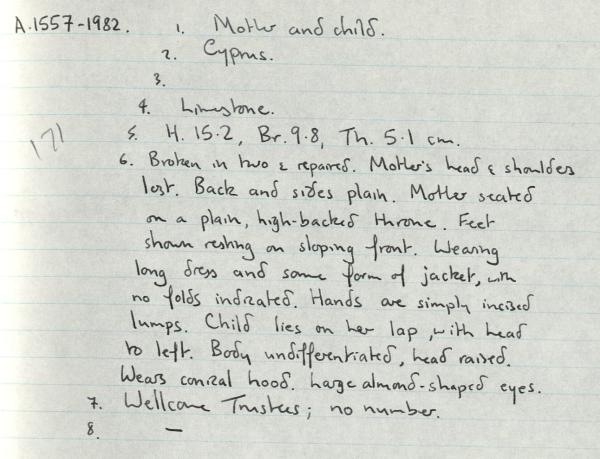 A.1557-1982. 1. Mother and child.
2. Cyprus.
3.
4. Limestone.
171
5. H. 15.2, Br. 9.8, Th. 5.1 cm.
6. Broken in two & repaired. Mother's head & shoulders
lost. Back and sides plain. Mother seated
on a plain, high-backed throne. Feet
shown resting on sloping front. Wearing
long dress and some form of jacket, with
no folds indicated. Hands are simply incised
lumps. Child lies on her lap, with head
to left. Body undifferentiated, head raised.
Wears conical hood. Large almond-shaped eyes.
7. Wellcome Trustees; no number.
8. —